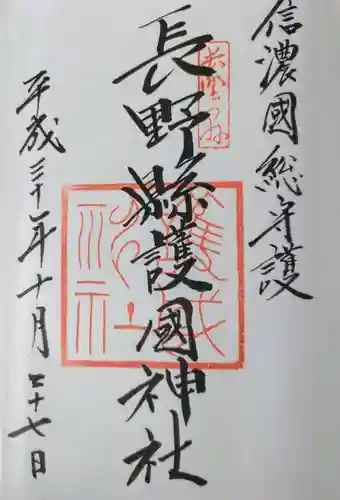 信濃國総守護
長野縣護國神社
平成三十年十月二十七日